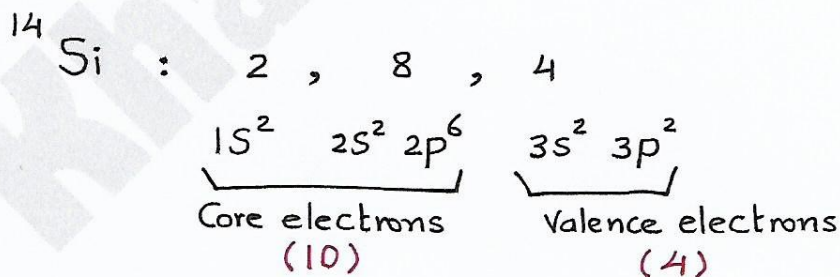 ¹⁴Si : 2 , 8 , 4
1S² 2S² 2p⁶ 3s² 3p²
Core electrons Valence electrons
(10) (4)